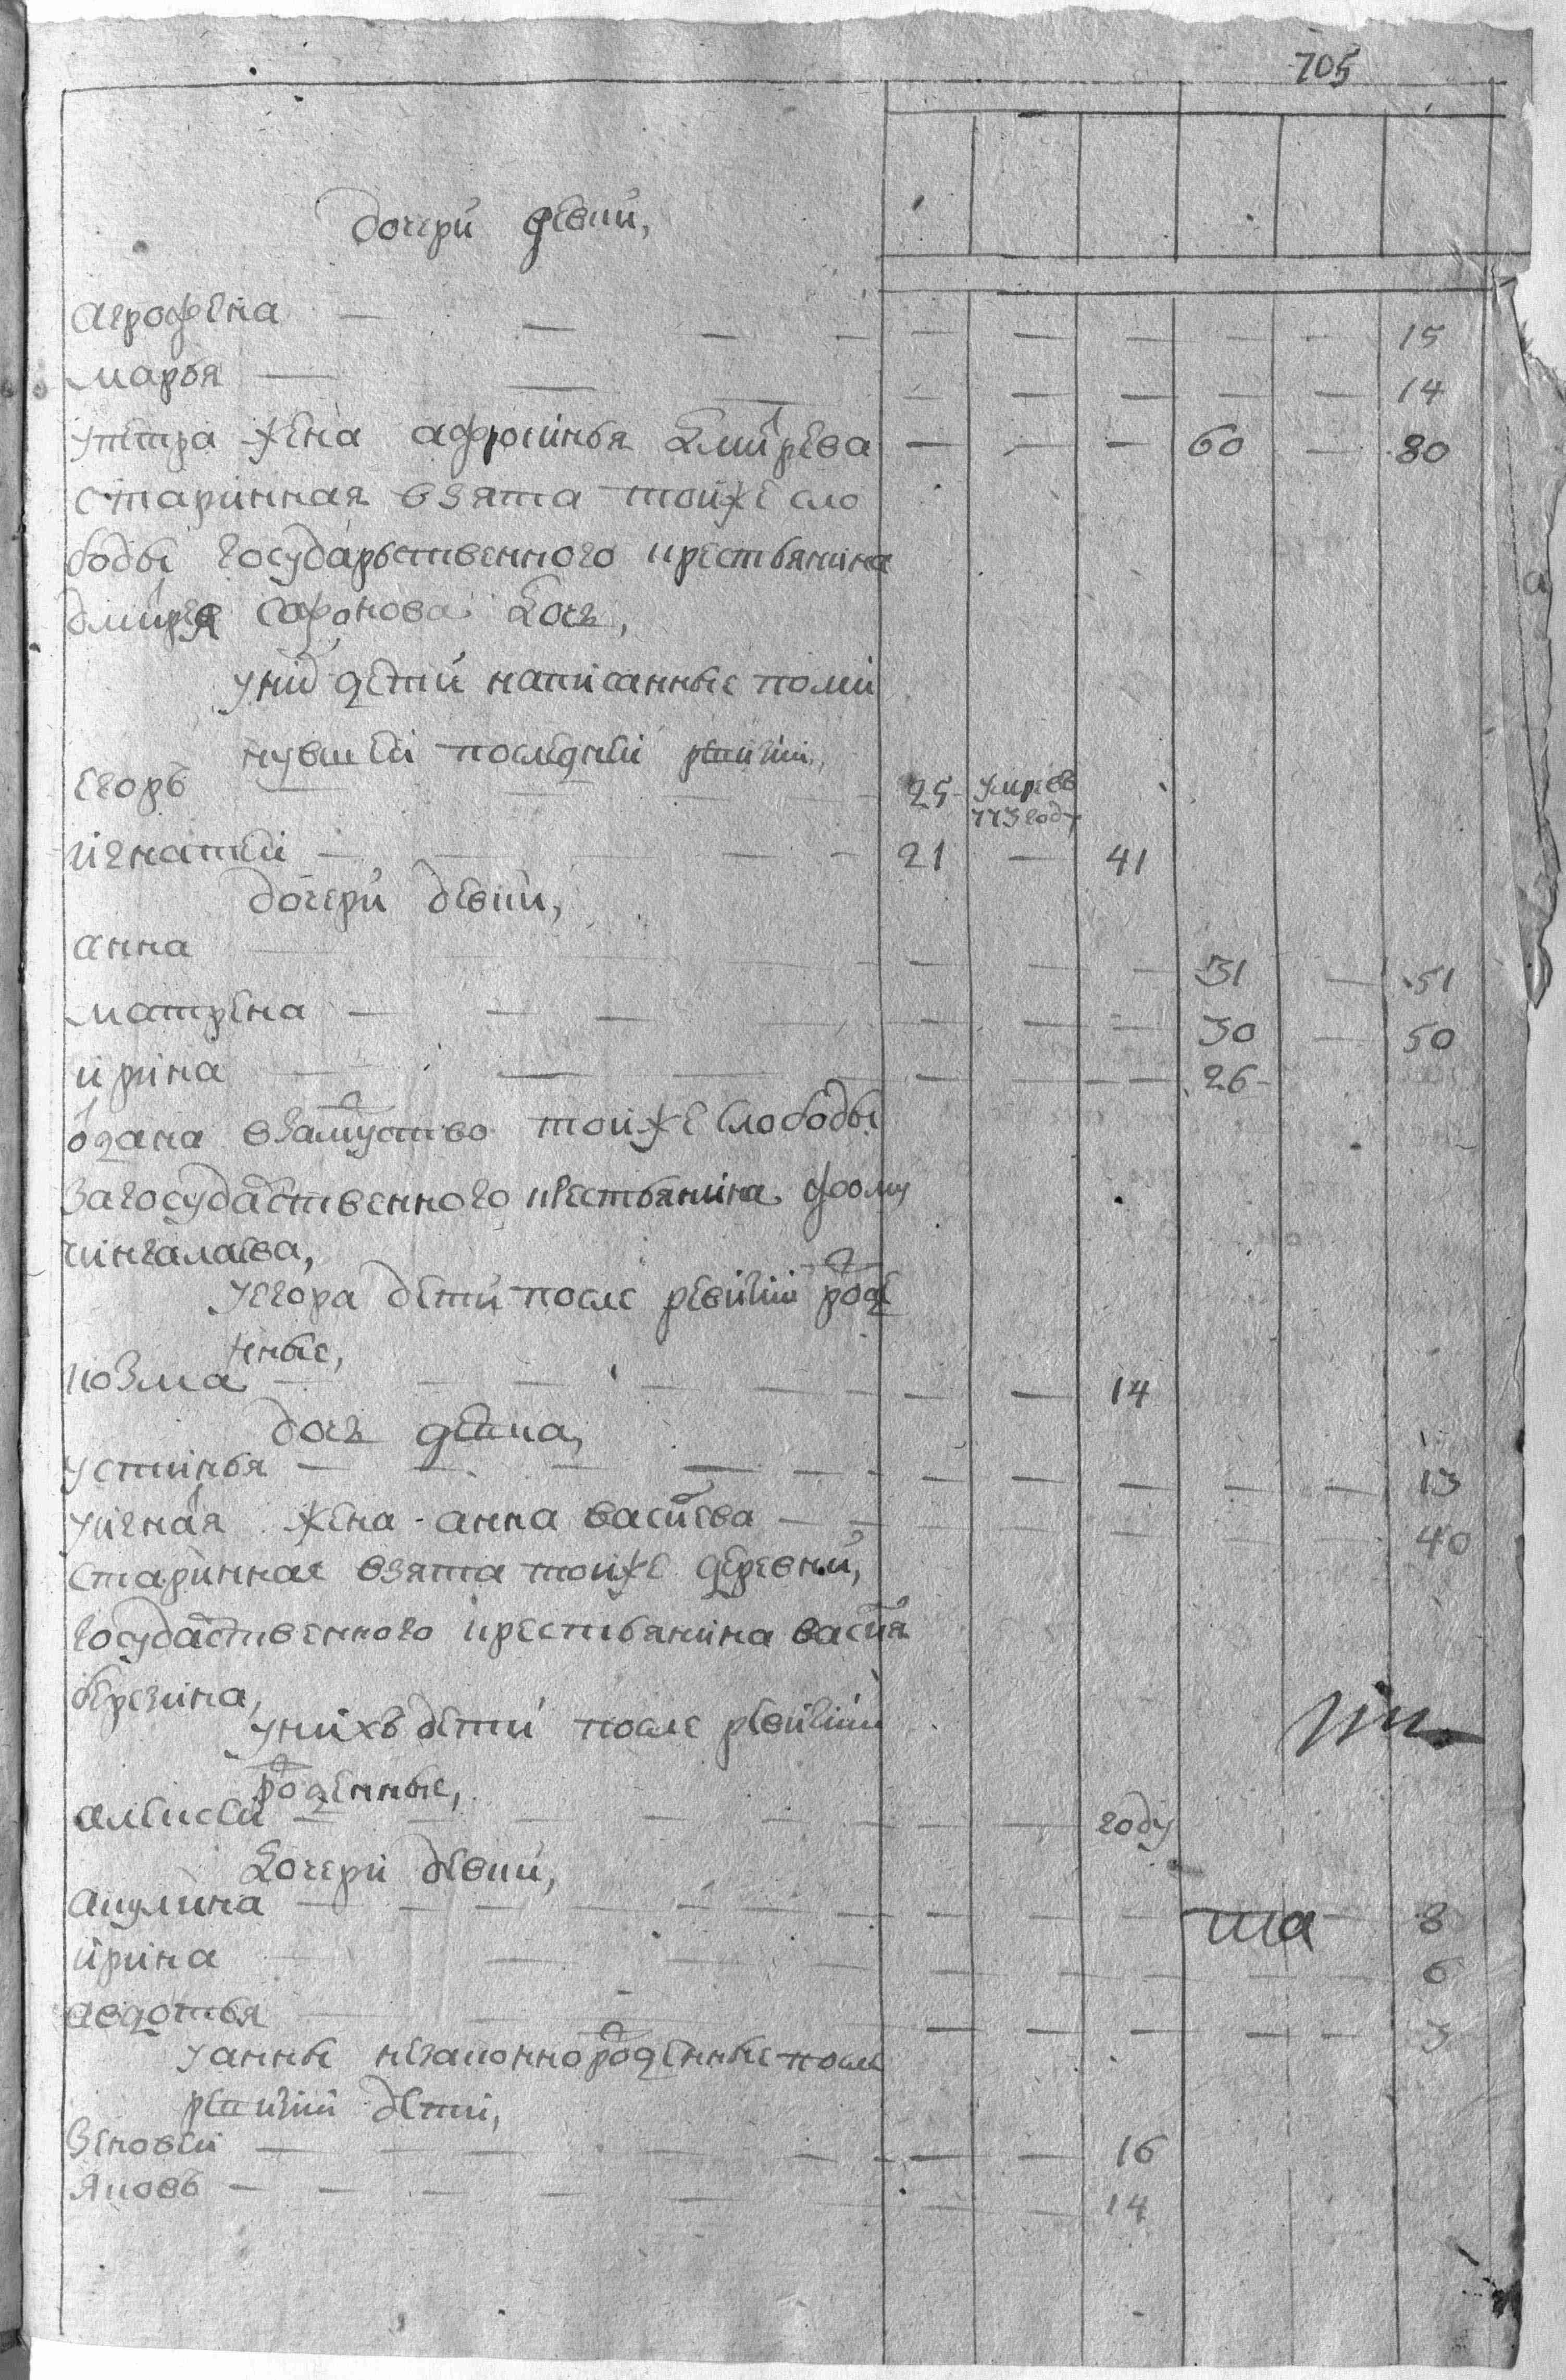 705
дочери девки,
агрофена — — — — — — — — — 15
марья — — — — — — — — 14
упетра жена афросинья дмитрева — — — 60 — 80
старинная взята тойже сло
боды государственного крестьянина
дмитрея сафонова дочь,
уних детй написанные поми
нувшей последней ревизии,
егоръ — — — 25 умре в 773 году
игнатей — — — — 21 — 41
дочери девки,
анна — — — 31 — 51
матрена — — — — — — — 30 — 50
ирина — — — — — — — — 26
одана взамуство тойже слободы
загосударственного крестьянина фому
чингалаева,
уегора дети после ревизии рожде
нные,
козма — — — — — — — — 14
дочь девка,
устинья — — — — — — — — — — — 13
уигнатья жена анна васильева — — — — — — — 40
стариннае взята тойже деревни,
государственного крестьянина василья
березина,
унихъ дети после ревизии
рожденные,
алексей — — — — — — — году
дочери девки,
акулина — — — — — — — — — — ша — 8
ирина — — — — — — — — — 6
авдотья — — — — — — — — 3
уанны незаконнорожденные после
ревизии дети,
зеновей — — — — — — — 16
яковъ — — — — — — — 14